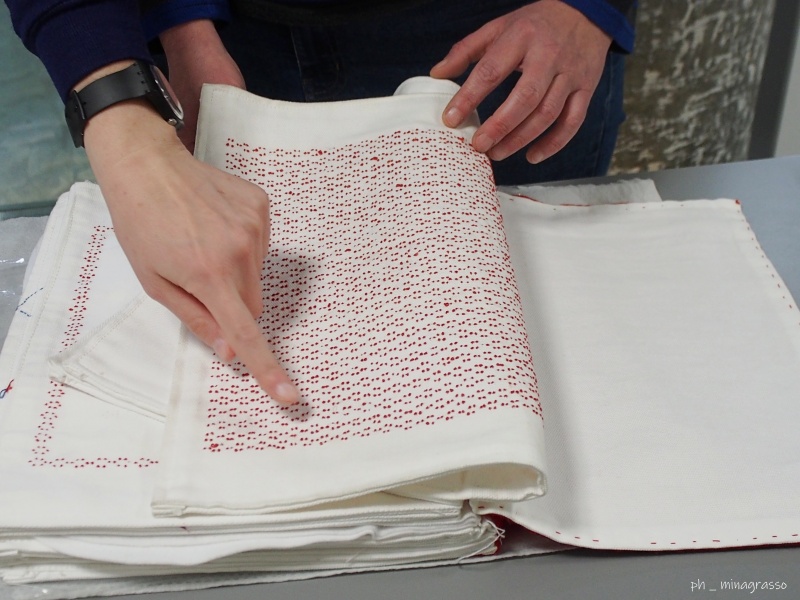 ph _ minagrasso